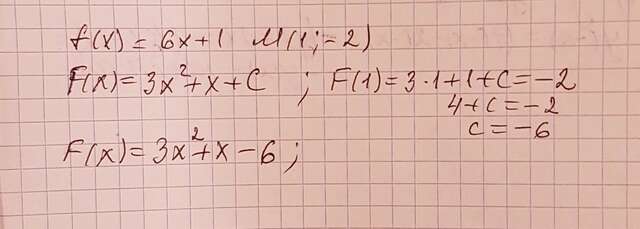 f(x) = 6x+1 M(1;-2)
F(x) = 3x²+x+C ; F(1) = 3·1+1+C = -2
4+C = -2
C = -6
F(x) = 3x²+x-6;